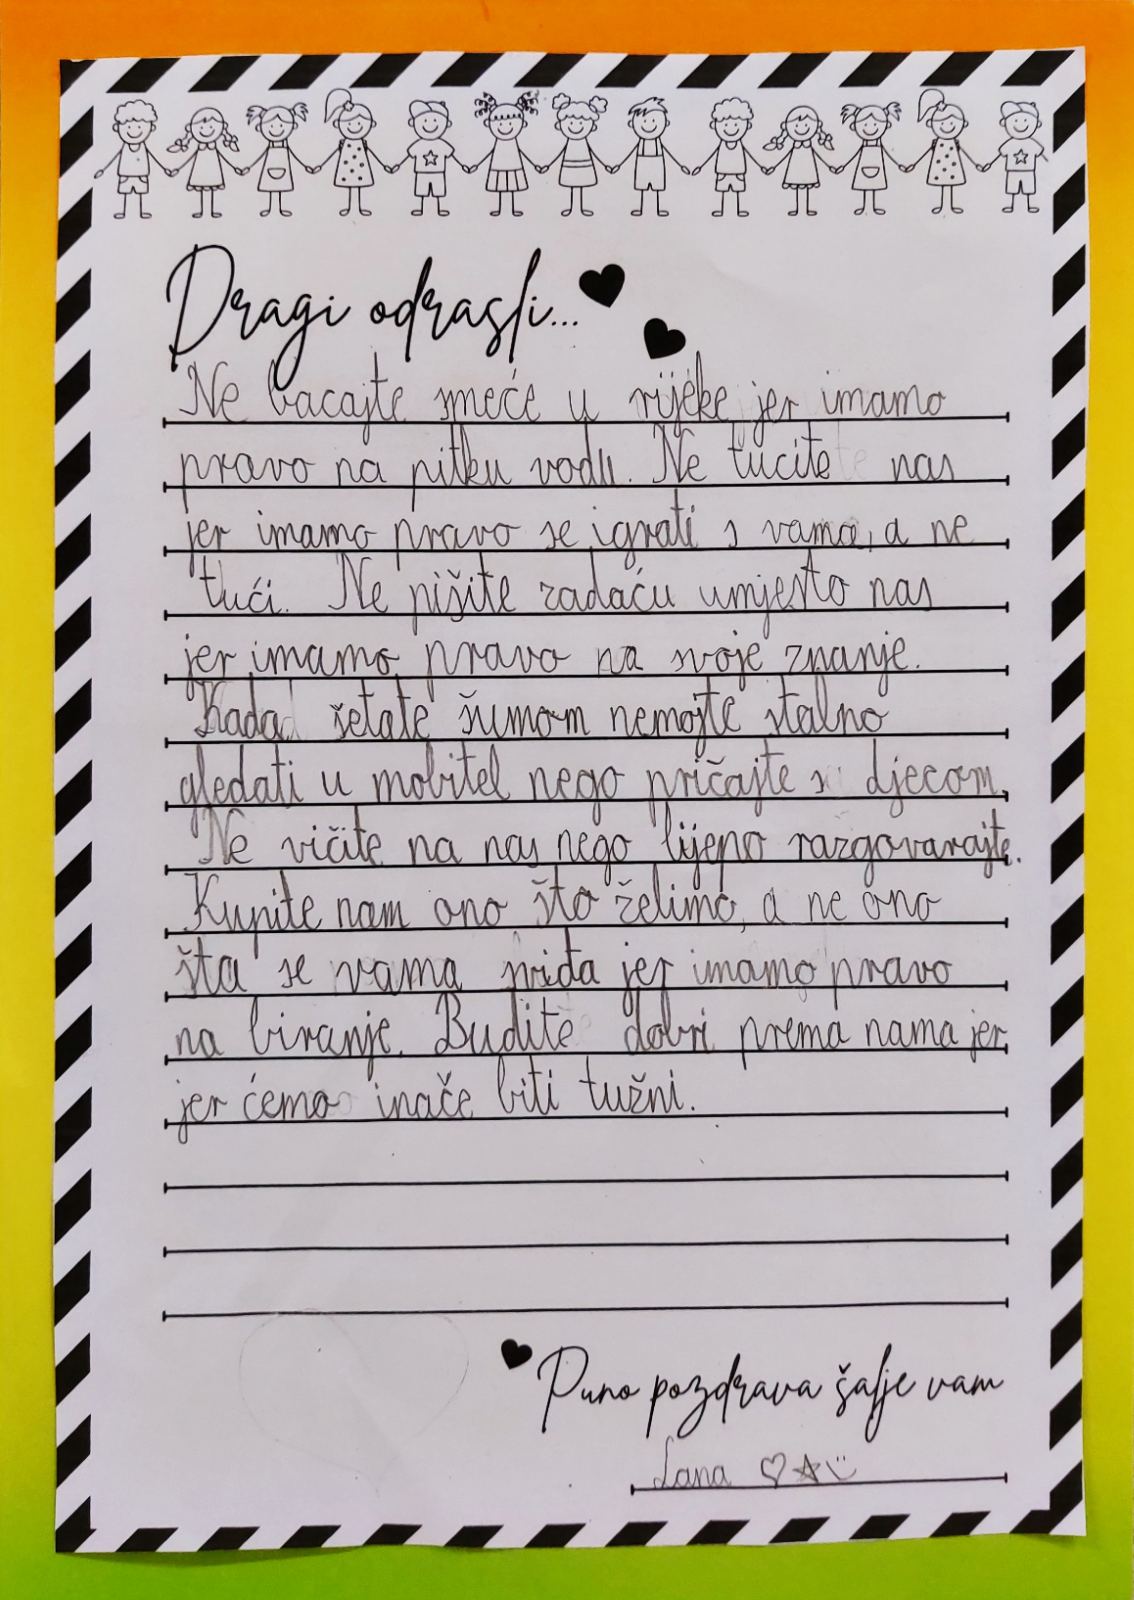 Dragi odrasli...
Ne bacajte smeće u rijeke jer imamo
pravo na pitku vodu. Ne tucite nas
jer imamo pravo se igrati s vama, a ne
tući. Ne pišite zadaću umjesto nas
jer imamo pravo na svoje znanje.
Kada šetate šumom nemojte stalno
gledati u mobitel nego pričajte s djecom.
Ne vičite na nas nego lijepo razgovarajte.
Kupite nam ono što želimo, a ne ono
šta se vama sviđa jer imamo pravo
na biranje. Budite dobri prema nama jer
jer ćemo inače biti tužni.
Puno pozdrava šalje vam
Lana